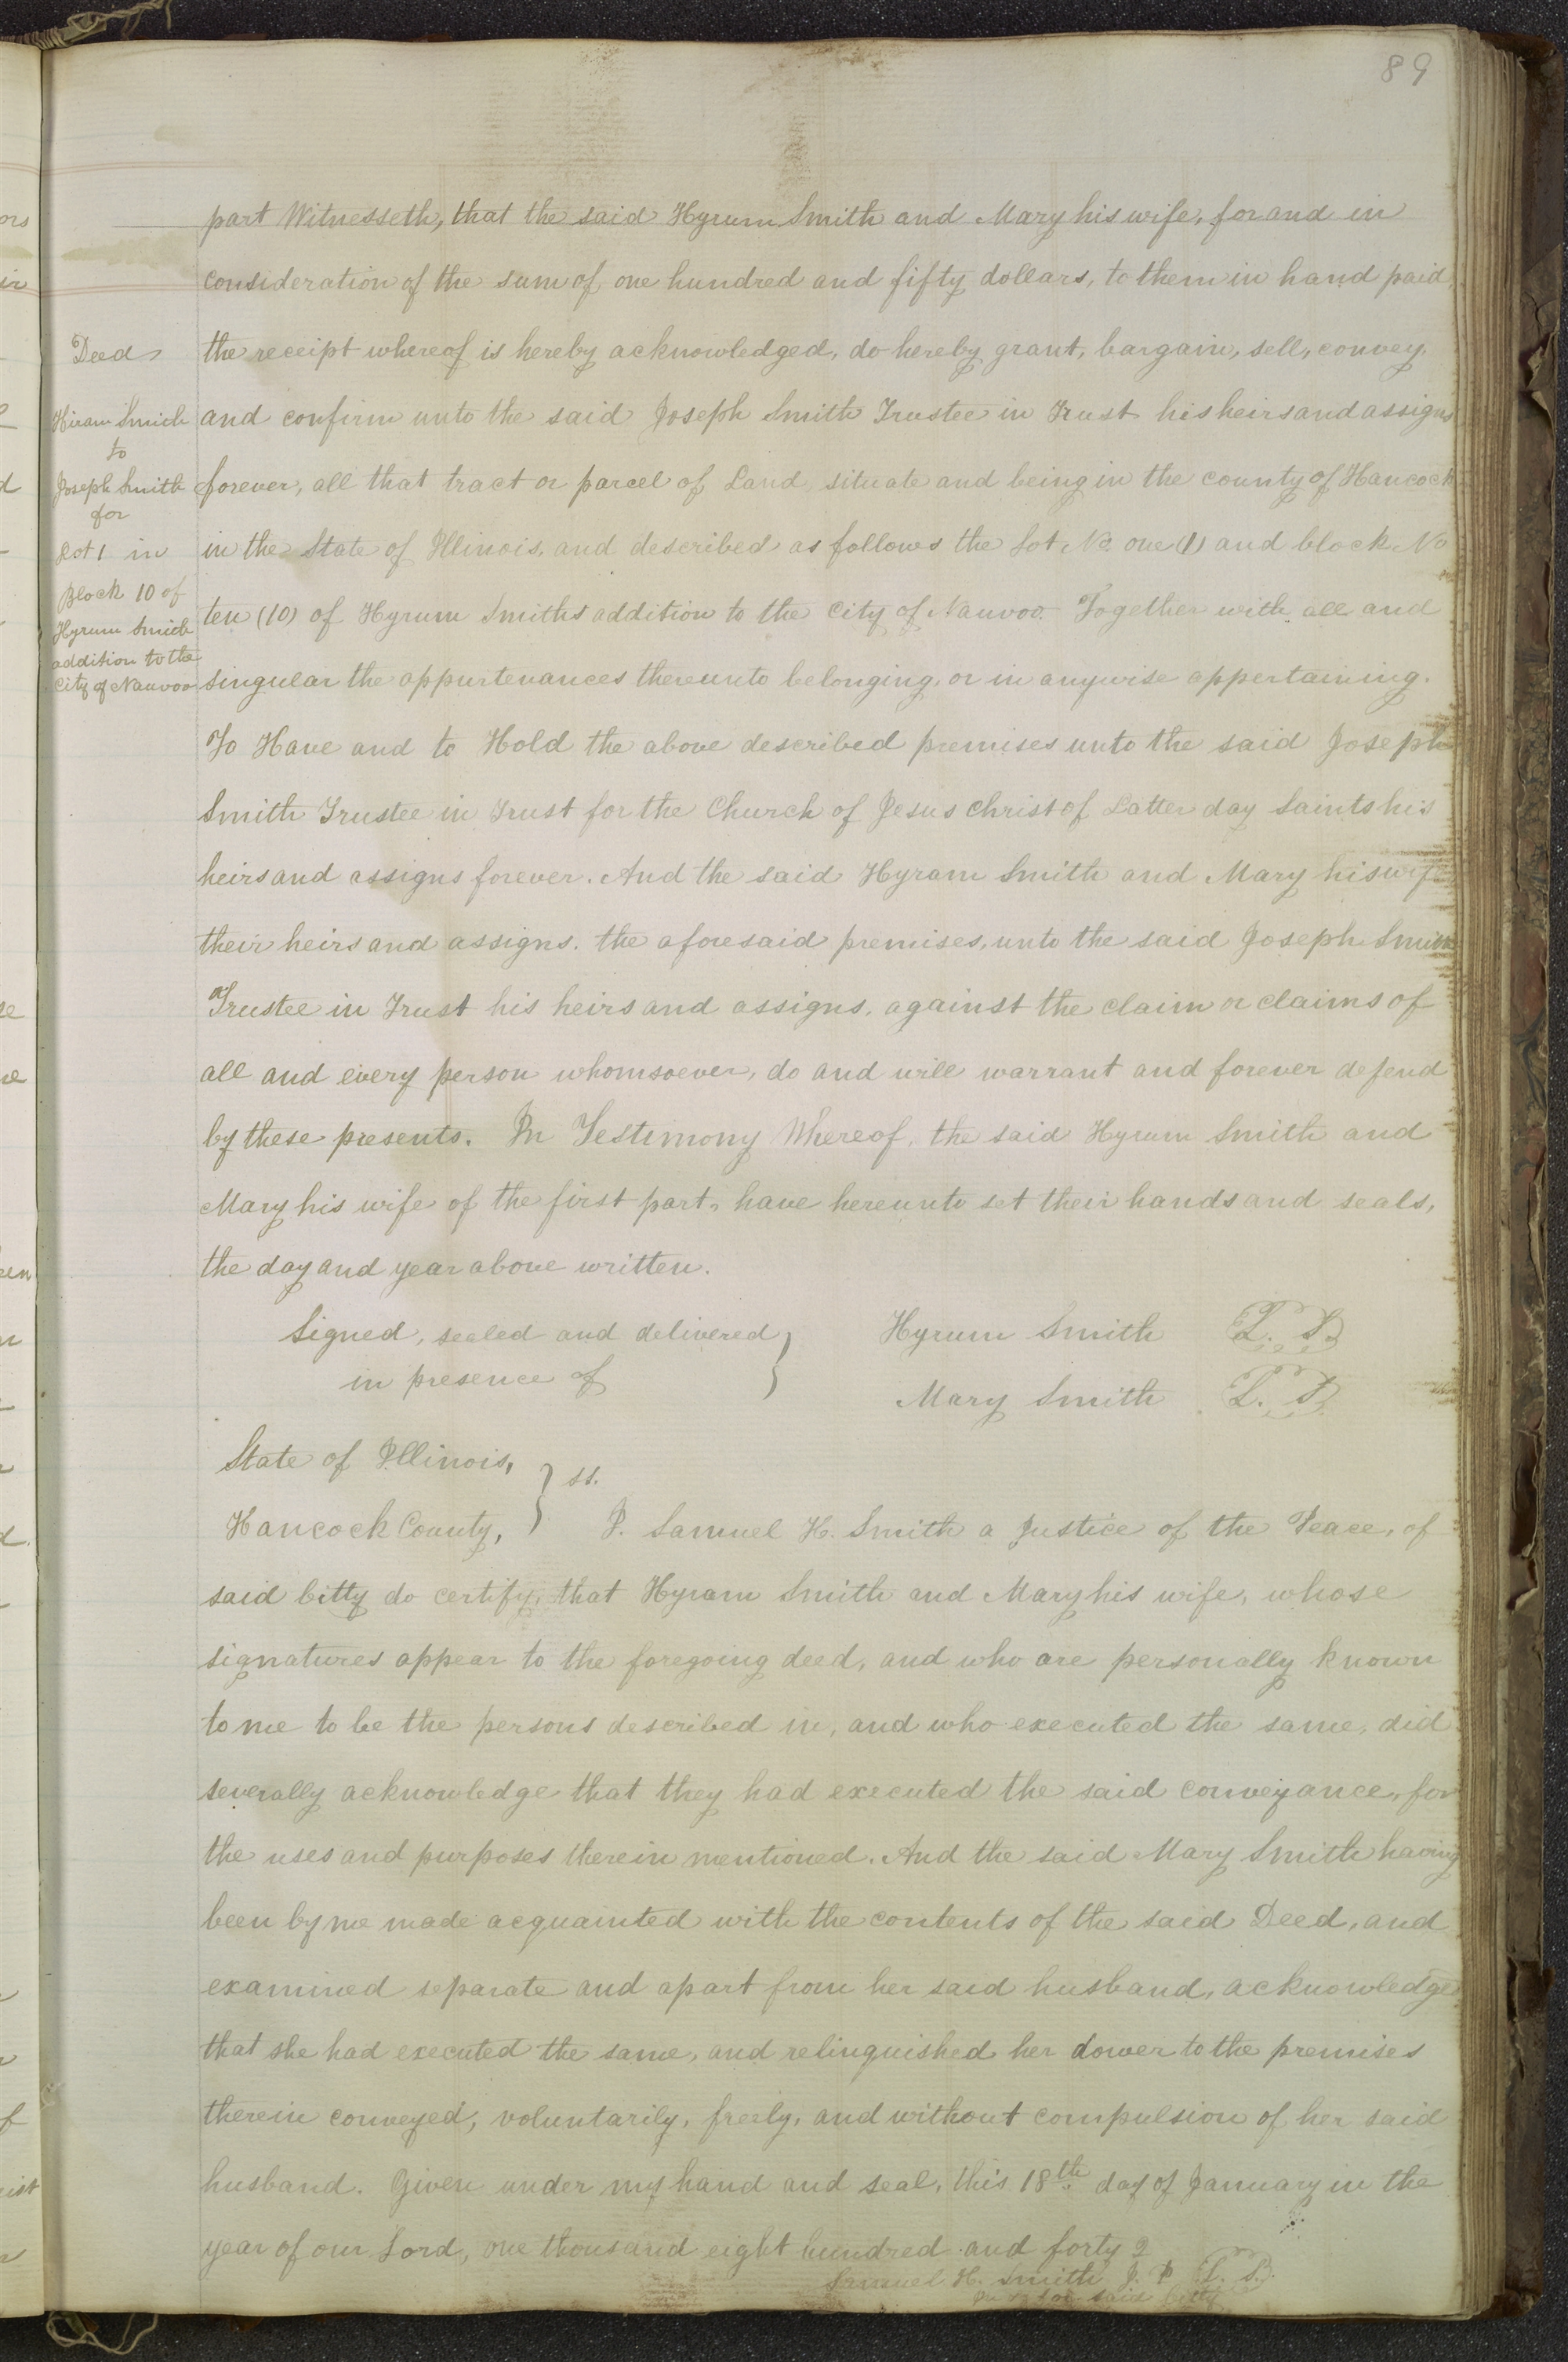 89
part Witnesseth, that the said Hyrum Smith and Mary his wife, for and in
consideration of the sum of one hundred and fifty dollars, to them in hand paid,
the receipt whereof is hereby acknowledged, do hereby grant, bargain, sell, convey,
and confirm unto the said Joseph Smith Trustee in Trust his heirs and assigns
forever, all that tract or parcel of Land, situate and being in the county of Hancock
in the State of Illinois, and described as follows the Lot No. one (1) and block No
ten (10) of Hyrum Smiths addition to the City of Nauvoo. Together with all and
singular the appurtenances thereunto belonging, or in anywise appertaining.
To Have and to Hold the above described premises unto the said Joseph
Smith Trustee in Trust for the Church of Jesus Christ of Latter day Saints his
heirs and assigns forever. And the said Hyram Smith and Mary his wife
their heirs and assigns. the aforesaid premises, unto the said Joseph Smith
Trustee in Trust his heirs and assigns, against the claim or claims of
all and every person whomsoever, do and will warrant and forever defend
by these presents. In Testimony Whereof, the said Hyrum Smith and
Mary his wife of the first part, have hereunto set their hands and seals,
the day and year above written.
Deed
Hiram Smith
to
Joseph Smith
for
Lot 1 in
Block 10 of
Hyrum Smith
addition to the
City of Nauvoo
Signed, sealed and delivered
in presence of
Hyrum Smith L. S.
Mary Smith L. S.
State of Illinois,
ss.
Hancock County, I. Samuel H. Smith a Justice of the Peace, of
said Citty do certify, that Hyram Smith and Mary his wife, whose
signatures appear to the foregoing deed, and who are personally known
to me to be the persons described in, and who executed the same, did
severally acknowledge that they had executed the said conveyance, for
the uses and purposes therein mentioned. And the said Mary Smith having
been by me made acquainted with the contents of the said Deed, and
examined separate and apart from her said husband, acknowledge
that she had executed the same, and relinquished her dower to the premises
therein conveyed, voluntarily, freely, and without compulsion of her said
husband. Given under my hand and seal, this 18th day of January in the
year of our Lord, one thousand eight hundred and forty 2
Samuel H. Smith J. P. L. S.
In & for said Citty